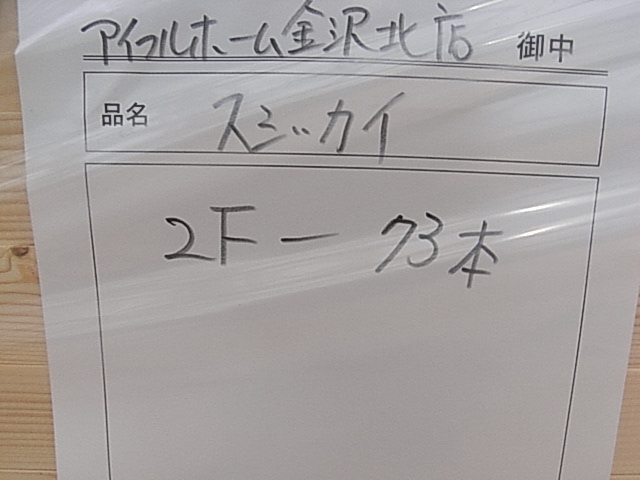 アイフルホーム金沢北店 御中
品名 スミッカイ
2F ー 73本